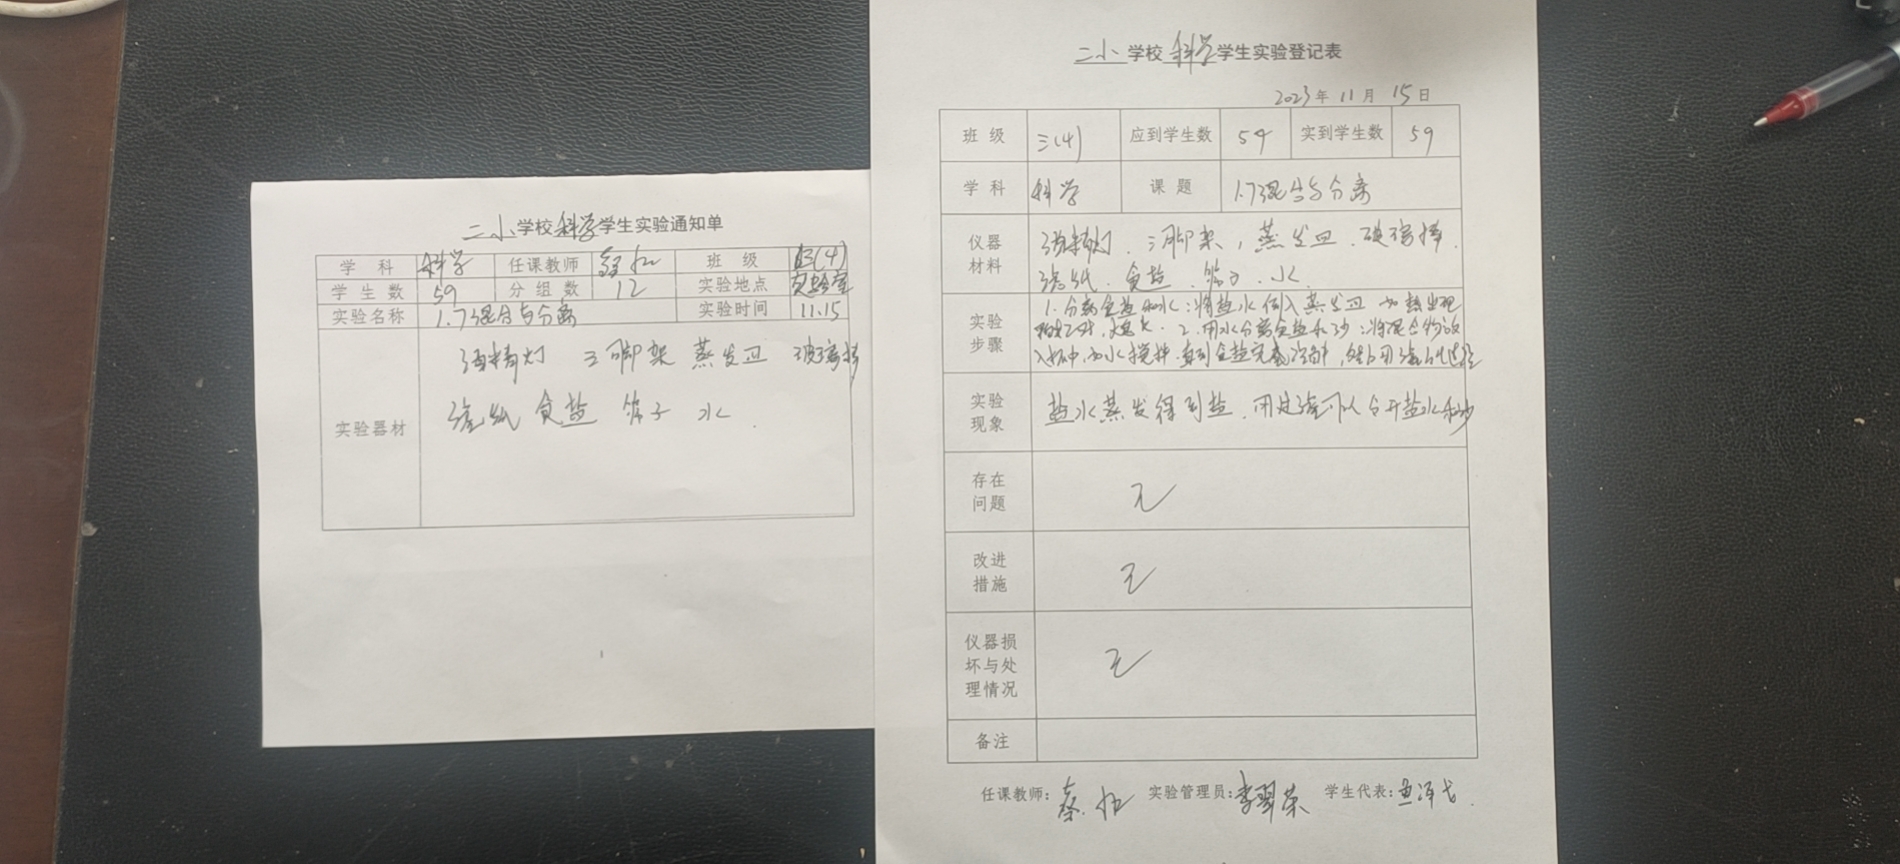 二小学校科学学生实验通知单
学科 科学 任课教师 班级 三(4)
学生数 59 分组数 12 实验地点 实验室
实验名称 1.7混合与分离 实验时间 11.15
实验器材
酒精灯 三脚架 蒸发皿 玻璃棒
滤纸 食盐 筛子 水
二小学校科学学生实验登记表
2023年11月15日
班级 三(4) 应到学生数 59 实到学生数 59
学科 科学 课题 1.7混合与分离
仪器材料
酒精灯、三脚架、蒸发皿、玻璃棒、
滤纸、食盐、筛子、水
实验步骤
1.分离食盐和水:将盐水倒入蒸发皿 加热出现
熄火. 2.用水分离食盐和沙:将混合物放
入杯中,加水搅拌,直到食盐完全溶解,然后用滤纸过滤
实验现象
盐水蒸发得到盐、用过滤可以分开盐水和沙
存在问题
无
改进措施
无
仪器损坏与处理情况
无
备注
任课教师:蔡 实验管理员:李翠荣 学生代表: